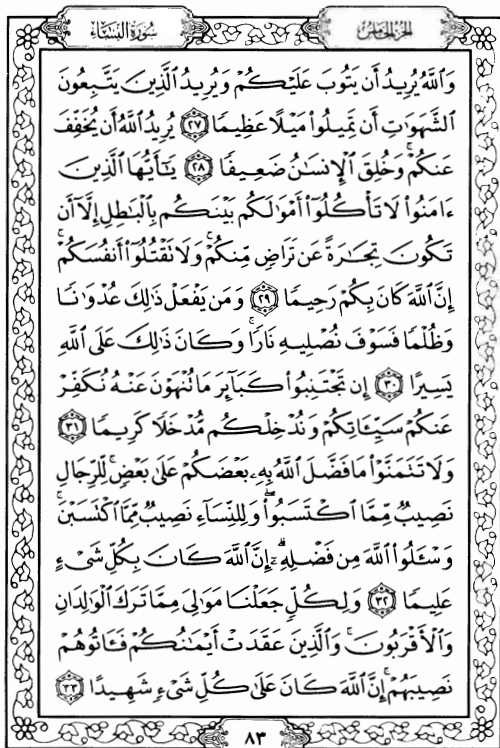 سُورَةُ النِّسَاءِ
الجُزْءُ الخَامِسُ
وَٱللَّهُ يُرِيدُ أَن يَتُوبَ عَلَيْكُمْ وَيُرِيدُ ٱلَّذِينَ يَتَّبِعُونَ
ٱلشَّهَوَٰتِ أَن تَمِيلُوا۟ مَيْلًا عَظِيمًا ٢٧ يُرِيدُ ٱللَّهُ أَن يُخَفِّفَ
عَنكُمْ ۚ وَخُلِقَ ٱلْإِنسَٰنُ ضَعِيفًا ٢٨ يَٰٓأَيُّهَا ٱلَّذِينَ
ءَامَنُوا۟ لَا تَأْكُلُوٓا۟ أَمْوَٰلَكُم بَيْنَكُم بِٱلْبَٰطِلِ إِلَّآ أَن
تَكُونَ تِجَٰرَةً عَن تَرَاضٍ مِّنكُمْ ۚ وَلَا تَقْتُلُوٓا۟ أَنفُسَكُمْ ۚ
إِنَّ ٱللَّهَ كَانَ بِكُمْ رَحِيمًا ٢٩ وَمَن يَفْعَلْ ذَٰلِكَ عُدْوَٰنًا
وَظُلْمًا فَسَوْفَ نُصْلِيهِ نَارًا ۚ وَكَانَ ذَٰلِكَ عَلَى ٱللَّهِ
يَسِيرًا ٣٠ إِن تَجْتَنِبُوا۟ كَبَآئِرَ مَا تُنْهَوْنَ عَنْهُ نُكَفِّرْ
عَنكُمْ سَيِّـَٔاتِكُمْ وَنُدْخِلْكُم مُّدْخَلًا كَرِيمًا ٣١
وَلَا تَتَمَنَّوْا۟ مَا فَضَّلَ ٱللَّهُ بِهِۦ بَعْضَكُمْ عَلَىٰ بَعْضٍ ۚ لِّلرِّجَالِ
نَصِيبٌ مِّمَّا ٱكْتَسَبُوا۟ ۖ وَلِلنِّسَآءِ نَصِيبٌ مِّمَّا ٱكْتَسَبْنَ ۚ
وَسْـَٔلُوا۟ ٱللَّهَ مِن فَضْلِهِۦٓ ۗ إِنَّ ٱللَّهَ كَانَ بِكُلِّ شَىْءٍ
عَلِيمًا ٣٢ وَلِكُلٍّ جَعَلْنَا مَوَٰلِىَ مِمَّا تَرَكَ ٱلْوَٰلِدَانِ
وَٱلْأَقْرَبُونَ ۚ وَٱلَّذِينَ عَقَدَتْ أَيْمَٰنُكُمْ فَـَٔاتُوهُمْ
نَصِيبَهُمْ ۚ إِنَّ ٱللَّهَ كَانَ عَلَىٰ كُلِّ شَىْءٍ شَهِيدًا ٣٣
٨٣